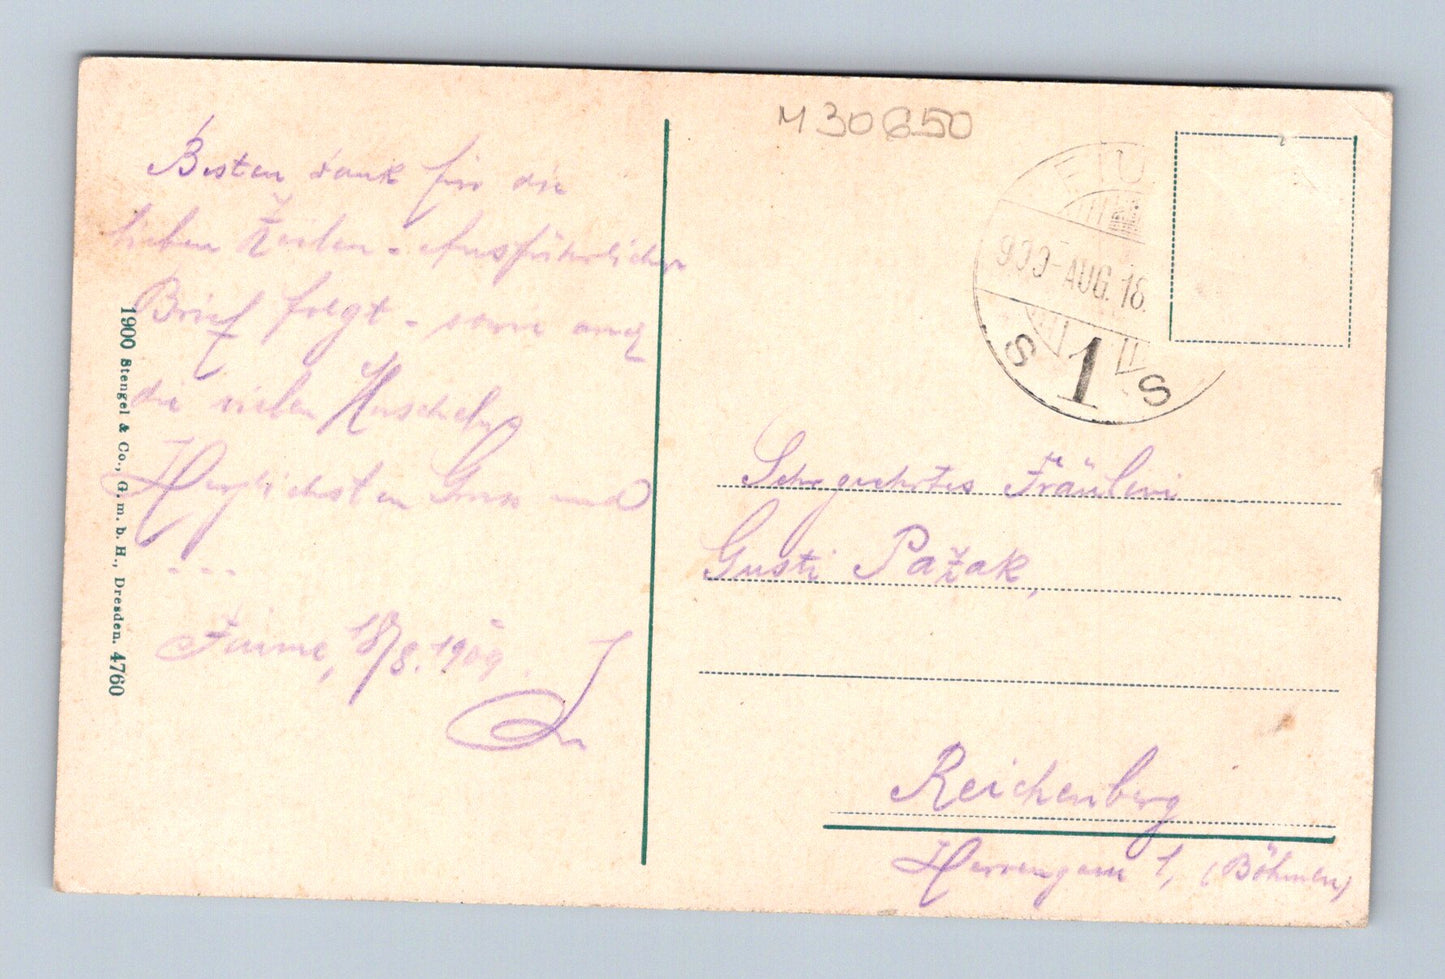 M 30650
Besten dank für die
lieben Zeilen - Ausführlicher
Brief folgt -
die vielen
Herzlichsten Gruss und
- - -
Fiume, 18/8. 1909.
1900 Stengel & Co., G. m. b. H., Dresden. 4760
FIU
909-AUG. 18.
S 1 S
Sehr geehrtes Fräulein
Gusti Pažak,
Reichenberg
Herrengasse 1, (Böhmen)